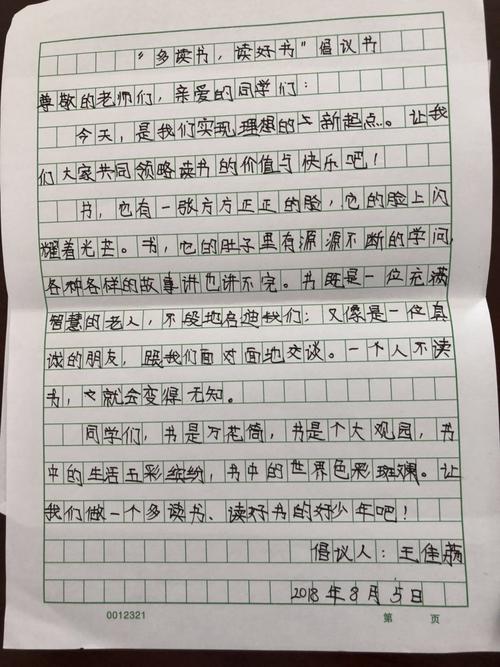 “多读书，读好书”倡议书
尊敬的老师们，亲爱的同学们：
今天，是我们实现理想的的新起点。让我
们大家共同领略读书的价值与快乐吧！
书，它有一张方方正正的脸，它的脸上闪
耀着光芒。书，它的肚子里有源源不断的学问，
各种各样的故事讲也讲不完。书既是一位充满
智慧的老人，不段地启迪我们；又像是一位真
诚的朋友，跟我们面对面地交谈。一个人不读
书，也就会变得无知。
同学们，书是万花筒，书是个大观园，书
中的生活五彩缤纷，书中的世界色彩斑斓。让
我们做一个多读书、读好书的好少年吧！
倡议人：王佳
2018年8月5日
0012321 第 页